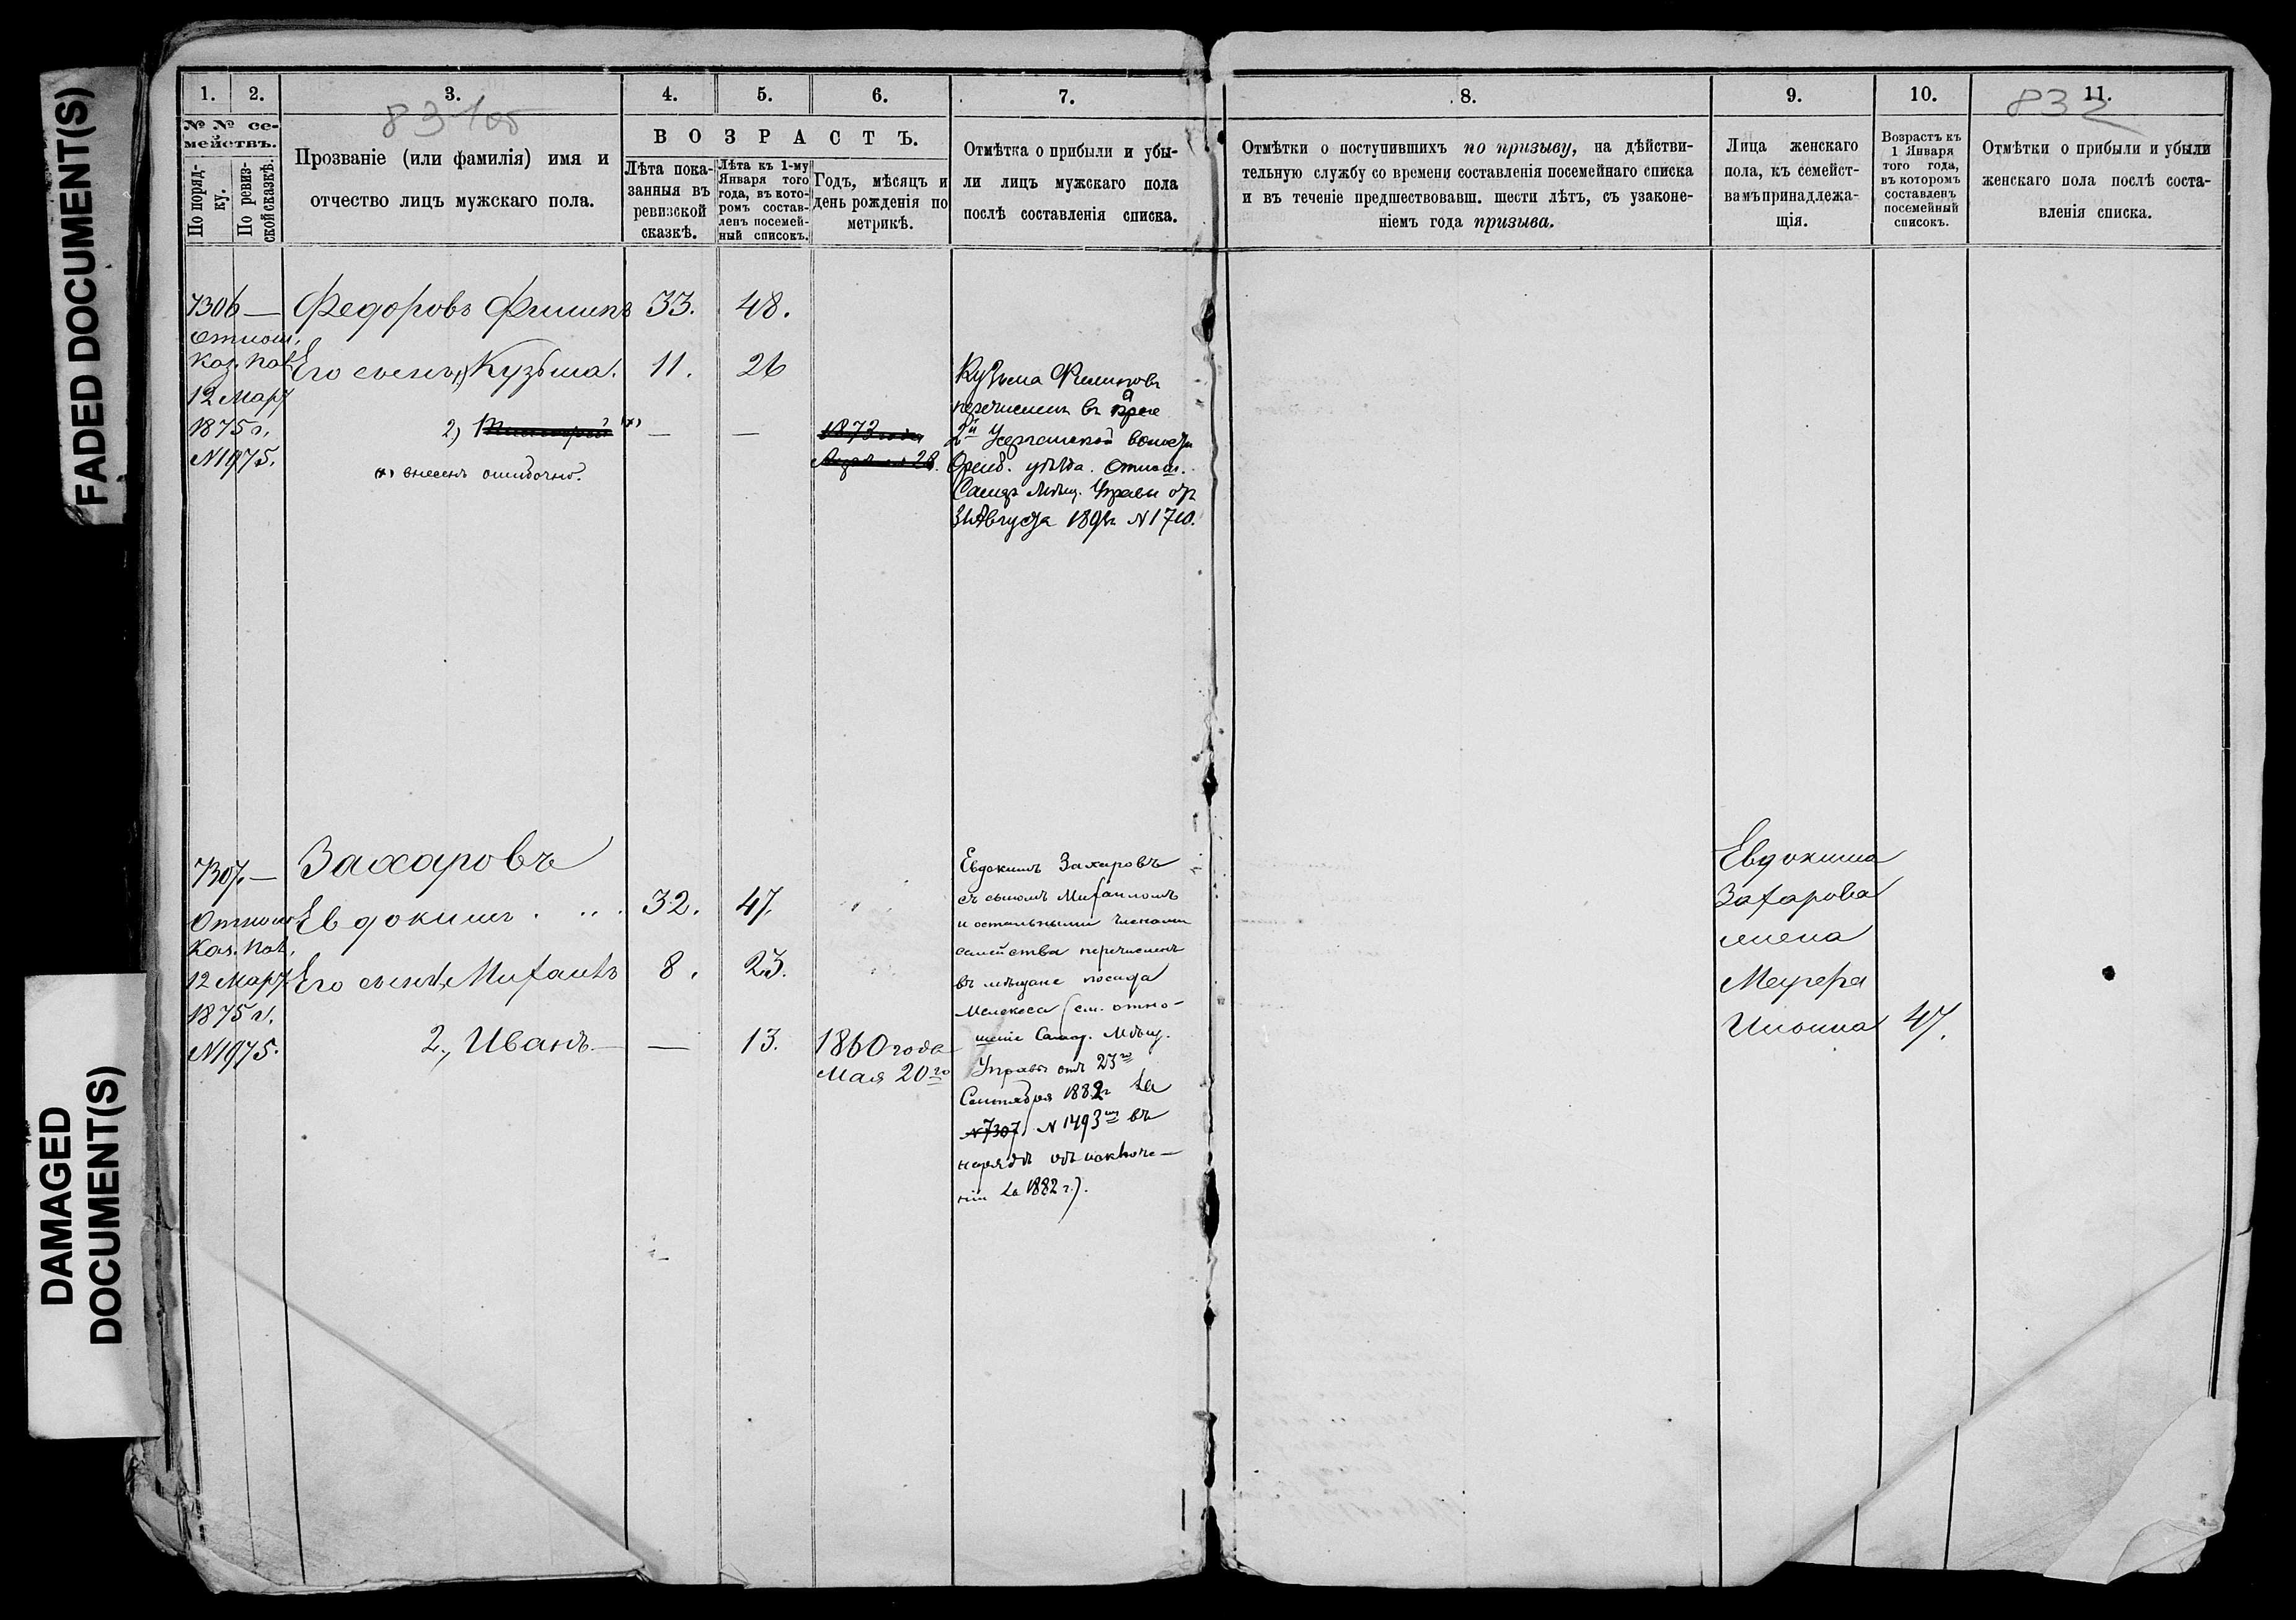 FADED DOCUMENT(S)
DAMAGED
DOCUMENT(S)
1.
2.
3.
4.
5.
6.
7.
8.
9.
10.
11.
832
№ № се-
мействъ.
По поряд-
ку.
По ревиз-
ской сказкѣ.
Прозваніе (или фамилія) имя и
отчество лицъ мужскаго пола.
ВОЗРАСТЪ.
Лѣта пока-
занныя въ
ревизской
сказкѣ.
Лѣта къ 1-му
Января того
года, въ кото-
ромъ состав-
ленъ посемей-
ный списокъ.
Годъ, мѣсяцъ и
день рожденія по
метрикѣ.
Отмѣтка о прибыли и убы-
ли лицъ мужскаго пола
послѣ составленія списка.
Отмѣтки о поступившихъ по призыву, на дѣйстви-
тельную службу со времени составленія посемейнаго списка
и въ теченіе предшествовавш. шести лѣтъ, съ узаконе-
ніемъ года призыва.
Лица женскаго
пола, къ семейст-
вамъ принадлежа-
щія.
Возрастъ къ
1 Января
того года,
въ которомъ
составленъ
посемейный
списокъ.
Отмѣтки о прибыли и убыли
женскаго пола послѣ соста-
вленія списка.
7306 — Федоровъ Филипъ 33. 48.
Отнош.
Каз. Пал.
12 Март
1875 г.
N 1975.
Его сынъ 1) Кузьма. 11. 26
2)
— —
1873 года
28.
(х) внесенъ ошибочно.
Кузьма Филиповъ
перечисленъ въ
2й волость
Оренб. уѣзда. Отнош.
Самар Мѣщ. Управы отъ
31 Августа N 1710.
7307. — Захаровъ
Евдокимъ 32. 47.
Отнош
Каз. Пал.
12 Март
1875 г.
N 1975.
Его сынъ 1, Михаилъ 8. 23.
2., Иванъ — — 13. 1860 года
Мая 20го
Евдокимъ Захаровъ
съ сыномъ Михаиломъ
и остальными членами
семейства перечисленъ
въ мѣщане посада
Мелекеса (см. отно-
шеніе Самар. Мѣщ.
Управы отъ 23го
Сентября 1882г за
N 7307 N 1493мъ въ
нарядѣ объ исключе-
ніи за 1882 г.).
Евдокима
Захарова
жена
Илвина 47.